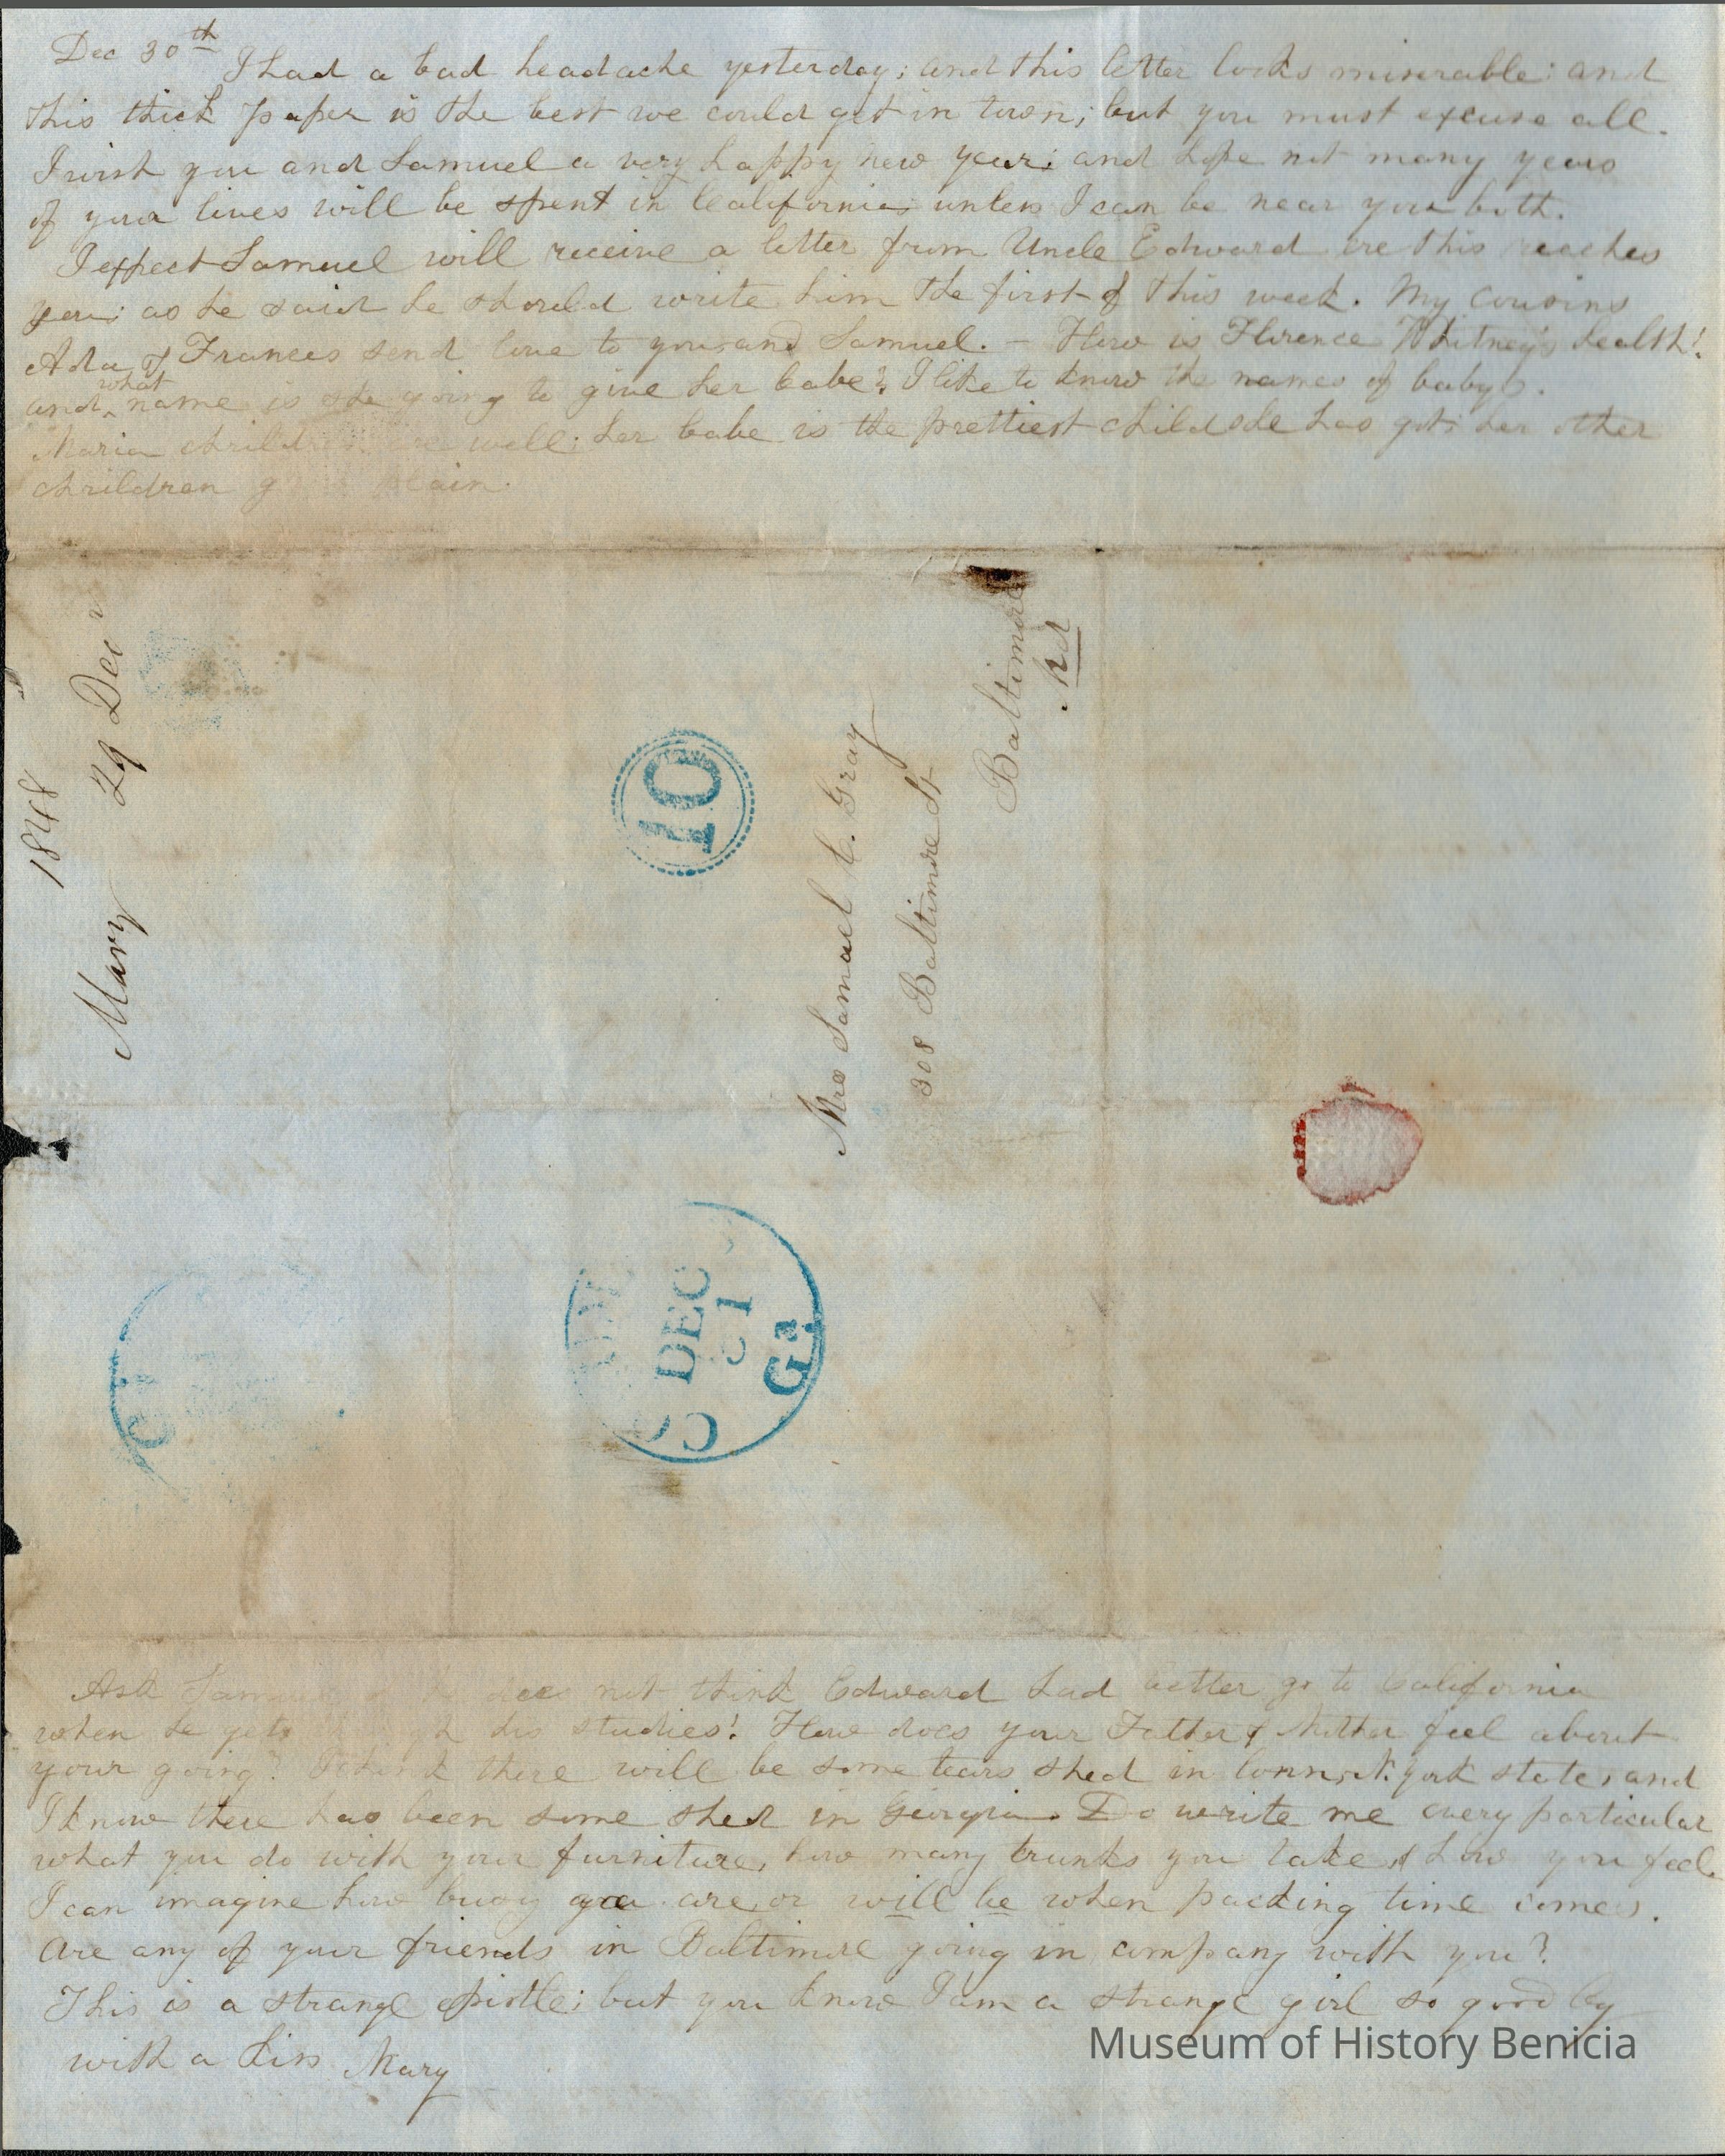 Dec 30th I had a bad headache yesterday; and this letter looks miserable: and
this thick paper is the best we could get in town; but you must excuse all.
I wish you and Samuel a very happy new year; and hope not many years
of your lives will be spent in California unless I can be near you both.
I expect Samuel will receive a letter from Uncle Edward ere this reaches
you; as he said he should write him the first of this week. My cousins
Ada & Frances send love to you and Samuel. – How is Florence Whitney's health!
and what name is she going to give her babe? I like to know the names of babys.
Maria children are well; her babe is the prettiest child she has got; her other
children plain.
1848
Mary 29 Decr
10
Mrs Samuel C. Gray
308 Baltimore St
Baltimore
Md
DEC
31
Ga
Ask Samuel if he does not think Edward had better go to California
when he gets through his studies! How does your Father & Mother feel about
your going? I think there will be some tears shed in Conn, N. York state, and
I know there has been some shed in Georgia. Do write me every particular
what you do with your furniture, how many trunks you take, & how you feel.
I can imagine how busy you are, or will be when packing time comes.
Are any of your friends in Baltimore going in company with you?
This is a strange epistle; but you know I am a strange girl so good by
with a kiss Mary
Museum of History Benicia